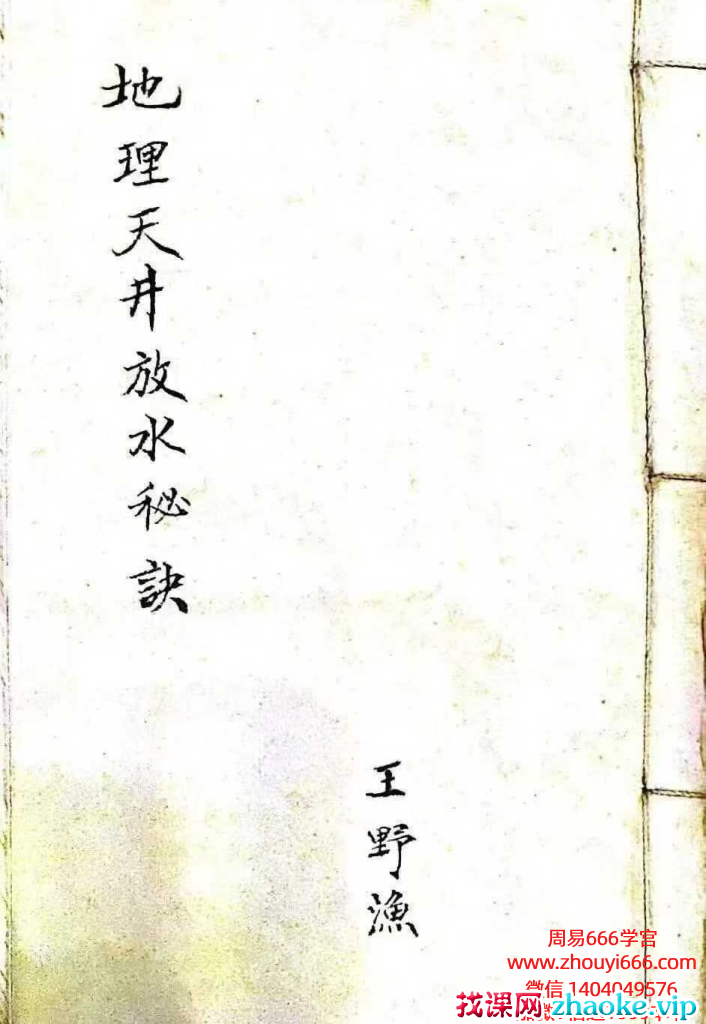 地理天井放水秘訣
王野漁
周易666学官
www.zhouyi666.com
微信 1404049576
找课网 zhaoke.vip